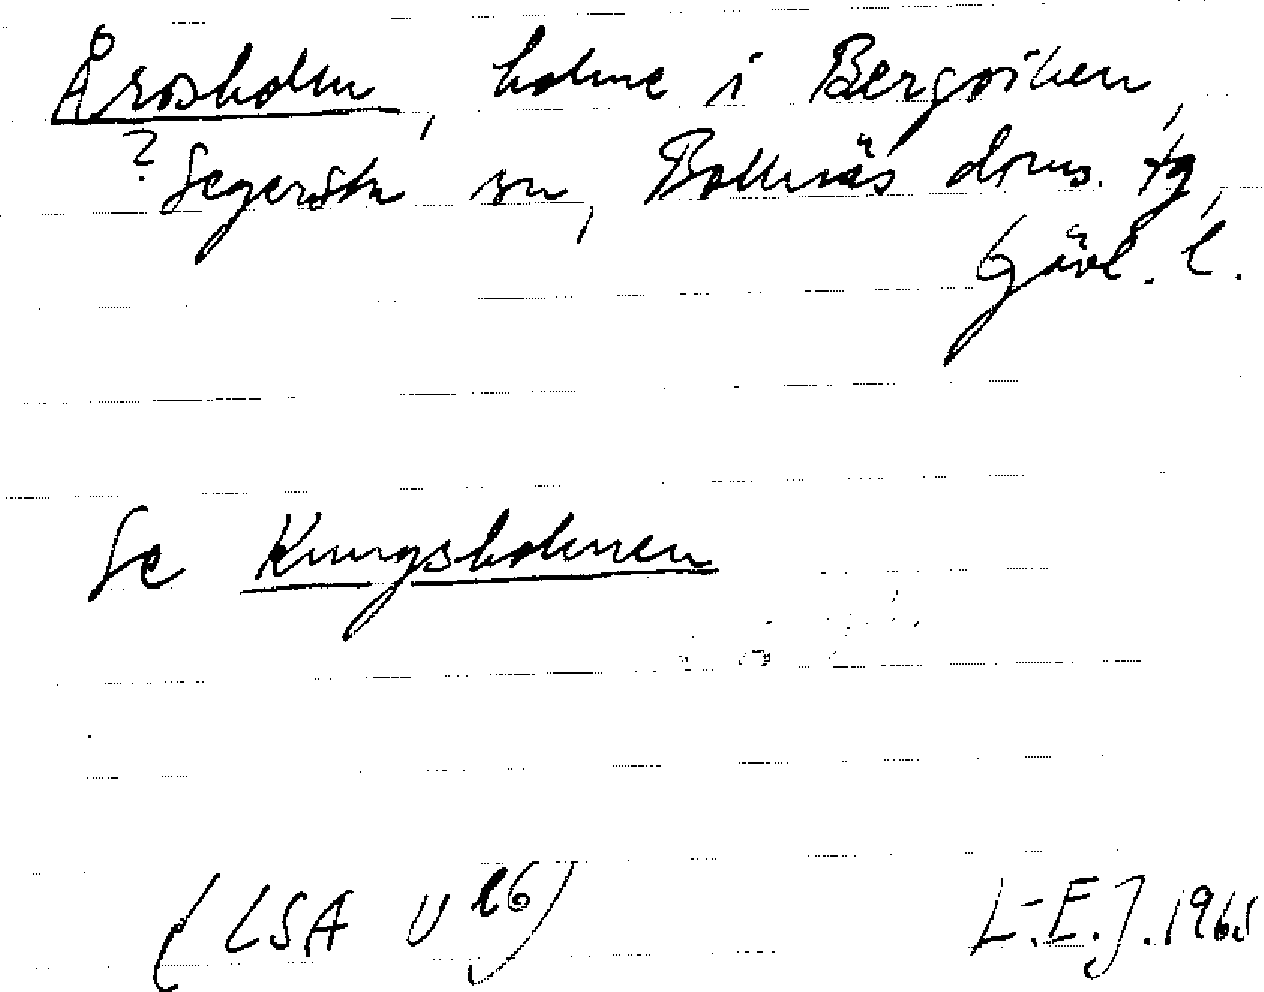 Årosholm, holme i Bergviken,
? Segersta sn, Bollnäs doms. tg,
Gävl. l.
Se Kungsholmen
(LSA U 26)
L-E.J. 1965